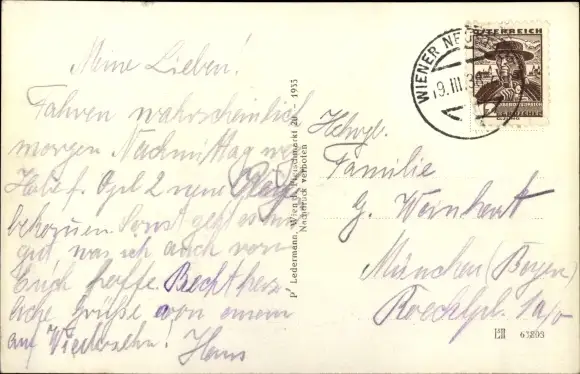 Meine Lieben!
Fahren wahrscheinlich
morgen Nachmittag
Habe f. Opel 2 neue
bekommen. Sonst geht es mir
gut, was ich auch von
Euch hoffe. Recht herz-
liche Grüße von einem
auf Wiedersehn! Hans
P. Ledermann, Wien I., Fleischmarkt 20 1935
Nachdruck verboten
WIENER NEUS
9. III. 3
ÖSTERREICH
Familie
G. Weinhart
München (Bayern)
63803